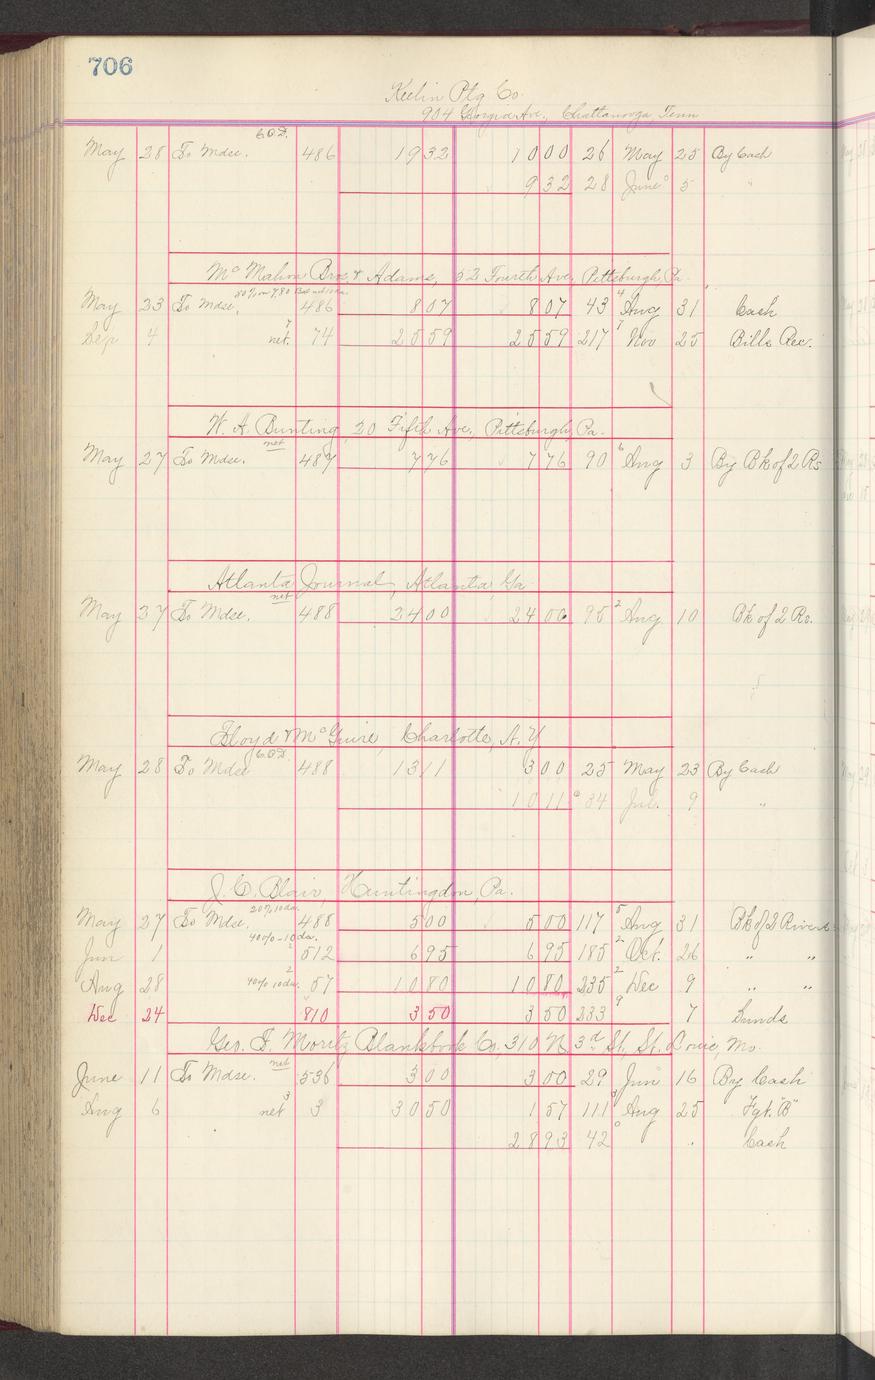 706
Keelin Ptg Co.
904 Georgia Ave., Chattanooga Tenn
C.O.D.
May 28 To Mdse. 486 1932 1000 26 May 25 By Cash
932 28 June 5 "
Mc Mahon Bros. & Adams, 52 Fourth Ave, Pittsburgh, Pa.
May 23 To Mdse, 486 807 807 43 4 Aug 31 Cash
Sep 4 net. 7 74 2559 2559 217 7 Nov 25 Bills Rec.
W. A. Bunting, 20 Fifth Ave., Pittsburgh, Pa.
net
May 27 To Mdse. 487 776 776 90 6 Aug 3 By Bk of 2 Rs
Atlanta Journal, Atlanta, Ga
net
May 27 To Mdse. 488 2400 2400 95 2 Aug 10 Bk of 2 Rs.
Floyd & McGuire, Charlotte, N. Y
C.O.D.
May 28 To Mdse 488 1311 300 25 May 23 By Cash
1011 34 9 "
J. C. Blair, Huntingdon, Pa.
20% 10 da.
May 27 To Mdse, 488 500 500 117 5 Aug 31 Bk of 2 Rivers
40% - 10 da.
Jun 1 512 695 695 185 2 Oct. 26 " "
Aug 28 40% 10 da. 2 57 1080 1080 235 2 Dec 9 " "
Dec 24 810 350 350 233 9 7 Sunds
Geo. F. Moritz Blankbook Co, 310 N. 3d St, St. Louis, Mo.
net
June 11 To Mdse. 536 300 300 29 Jun 16 By Cash
Aug 6 net 3 3 3050 157 111 3 Aug 25 Fgt. "B"
2893 42 " Cash